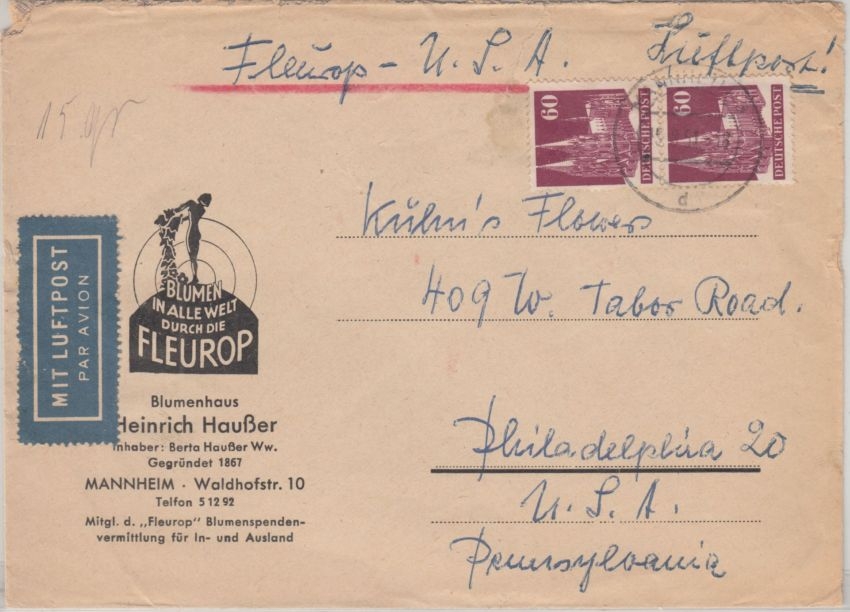 Fleurop - U. S. A. Luftpost!
15 gr
60 DEUTSCHE POST
60 DEUTSCHE POST
d
Kühn's Flower
409 W. Tabor Road.
Philadelphia 20
U. S. A.
Pennsylvania
MIT LUFTPOST
PAR AVION
BLUMEN
IN ALLE WELT
DURCH DIE
FLEUROP
Blumenhaus
Heinrich Haußer
Inhaber: Berta Haußer Ww.
Gegründet 1867
MANNHEIM · Waldhofstr. 10
Telfon 5 12 92
Mitgl. d. „Fleurop" Blumenspenden-
vermittlung für In- und Ausland